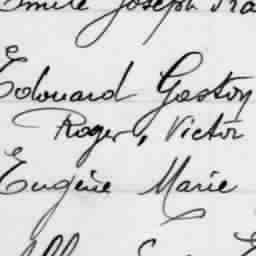 Emile Joseph
Edouard Gaston
Roger, Victor
Eugène Marie